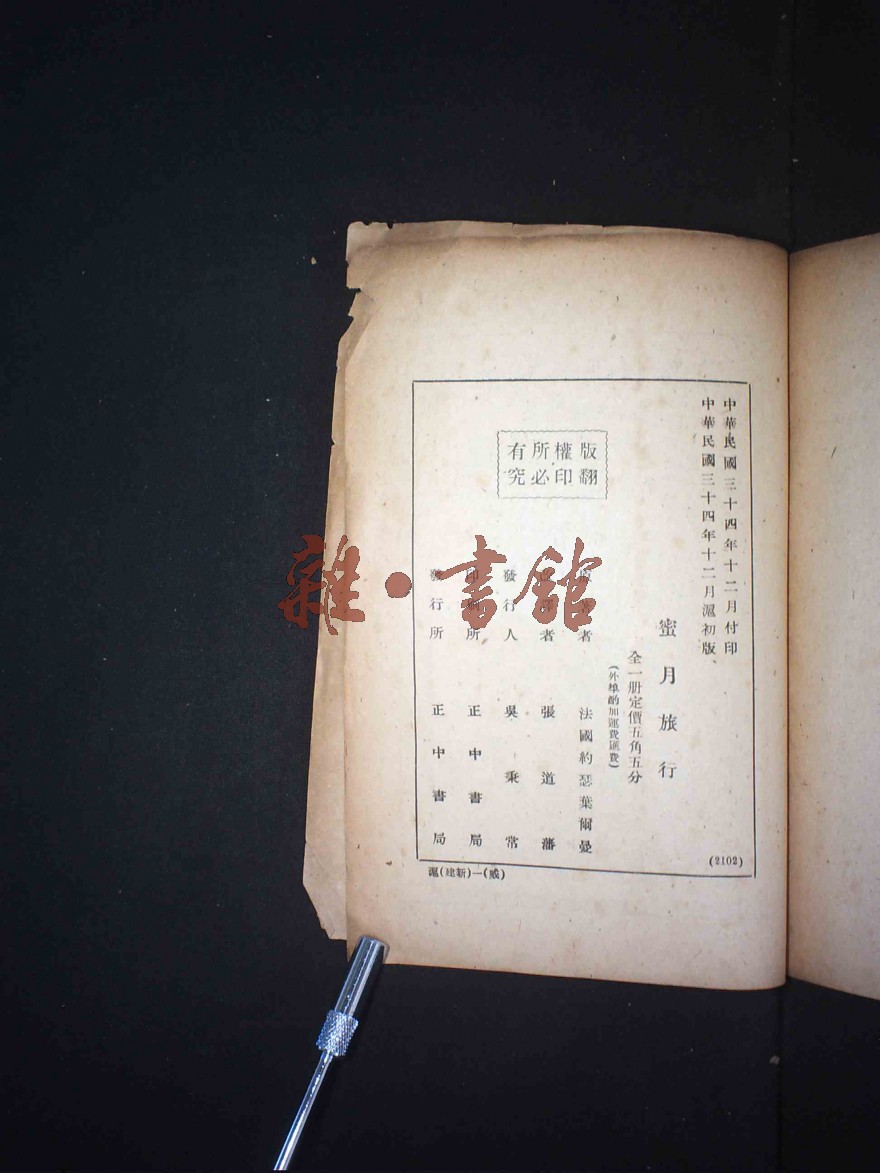 中華民國三十四年十二月付印
中華民國三十四年十二月滬初版
蜜月旅行
全一册定價五角五分
(外埠酌加運費匯費)
版權所有
翻印必究
原著者 法國約瑟葉爾曼
改譯者 張道藩
發行人 吳秉常
印刷所 正中書局
發行所 正中書局
(2102)
滬(建新)—(威)
雜·書館